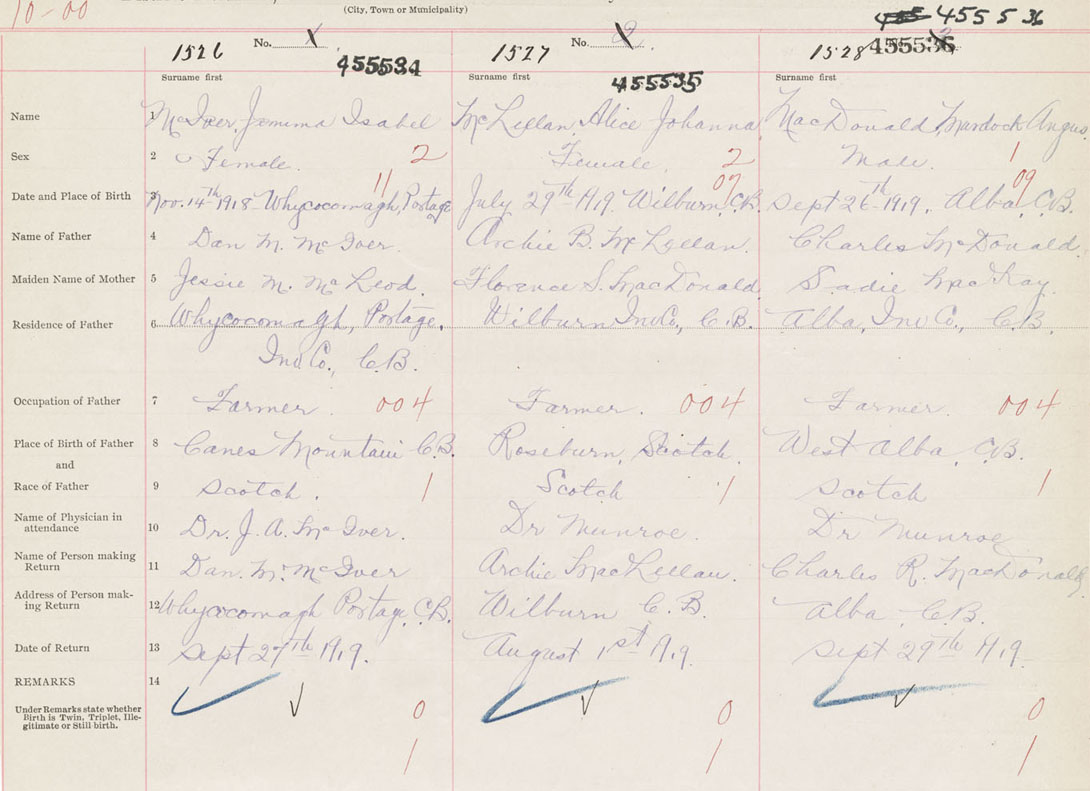 10-00
(City, Town or Municipality)
455 5 36
1526 No. 1 455534
1527 No. 2 455535
1528 455536
Surname first Surname first Surname first
Name 1 McIver, Jemima Isabel McLellan, Alice Johanna MacDonald, Murdock Angus
Sex 2 Female 2 Female. 2 Male. 1
11 07 09
Date and Place of Birth 3 Nov. 14th 1918 - Whycocomagh, Portage July 29th 1919. Wilburn, C.B. Sept 26th 1919. Alba, C.B.
Name of Father 4 Dan M. McIver. Archie B. McLellan. Charles McDonald.
Maiden Name of Mother 5 Jessie M. McLeod. Florence S. MacDonald. Sadie MacKay.
Residence of Father 6 Whycocomagh, Portage. Wilburn Inv Co, C.B. Alba, Inv Co., C.B.
Inv Co., C.B.
Occupation of Father 7 Farmer. 004 Farmer. 004 Farmer. 004
Place of Birth of Father 8 Canes Mountain C.B. Roseburn, Scotch. West Alba, C.B.
and
Race of Father 9 Scotch. 1 Scotch 1 Scotch 1
Name of Physician in
attendance 10 Dr. J. A. McIver. Dr Munroe. Dr Munroe
Name of Person making
Return 11 Dan. M. McIver Archie MacLellan. Charles R. MacDonald,
Address of Person mak-
ing Return 12 Whycocomagh Portage, C.B. Wilburn C.B. Alba, C.B.
Date of Return 13 Sept 27th 1919. August 1st 1919. Sept 29th 1919
REMARKS 14
Under Remarks state whether
Birth is Twin, Triplet, Ille-
gitimate or Still-birth.
0 0 0
1 1 1